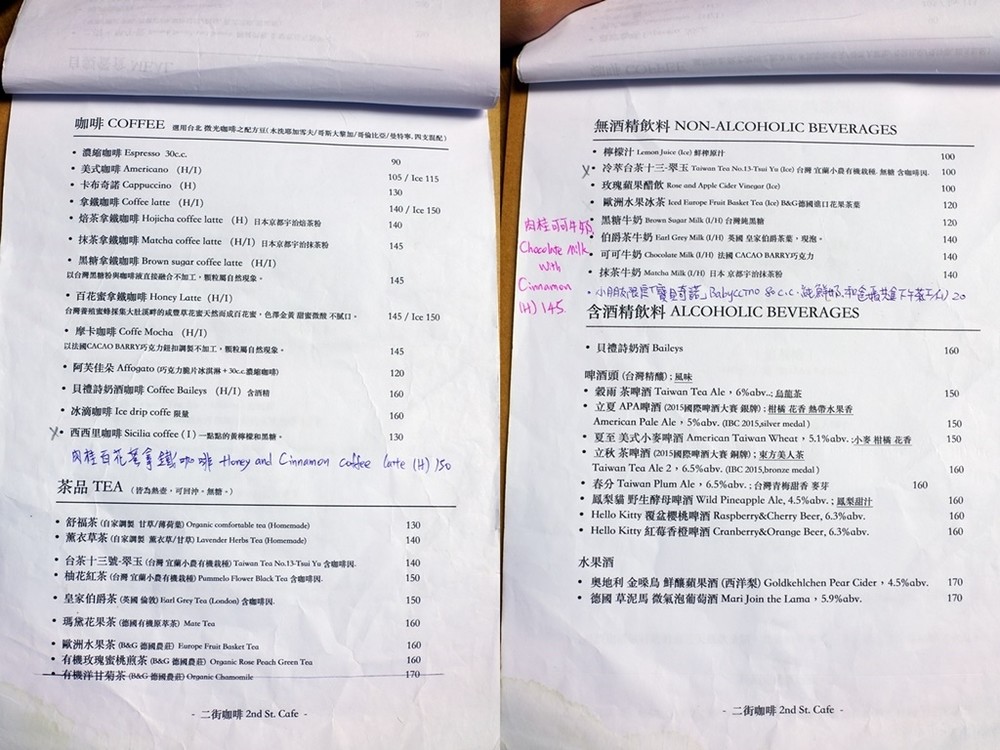 咖啡 COFFEE 選用台北 微光咖啡之配方豆(水洗耶加雪夫/哥斯大黎加/哥倫比亞/曼特寧.四支混配)
• 濃縮咖啡 Espresso 30c.c. 90
• 美式咖啡 Americano (H/I) 105 / Ice 115
• 卡布奇諾 Cappuccino (H) 130
• 拿鐵咖啡 Coffee latte (H/I) 140 / Ice 150
• 焙茶拿鐵咖啡 Hojicha coffee latte (H) 日本京都宇治焙茶粉 140
• 抹茶拿鐵咖啡 Matcha coffee latte (H/I) 日本京都宇治抹茶粉 145
• 黑糖拿鐵咖啡 Brown sugar coffee latte (H/I)
以台灣黑糖粉與咖啡液直接融合不加工，顆粒屬自然現象。 145
• 百花蜜拿鐵咖啡 Honey Latte (H/I)
台灣養殖蜜蜂採集大肚溪畔的咸豐草花蜜天然而成百花蜜，色澤金黃 甜蜜微酸 不膩口。 145 / Ice 150
• 摩卡咖啡 Coffe Mocha (H/I)
以法國CACAO BARRY巧克力鈕扣調製不加工，顆粒屬自然現象。 145
• 阿芙佳朵 Affogato (巧克力脆片冰淇淋 + 30c.c.濃縮咖啡) 120
• 貝禮詩奶酒咖啡 Coffee Baileys (H/I) 含酒精 160
• 冰滴咖啡 Ice drip coffe 限量 160
• 西西里咖啡 Sicilia coffee ( I ) 一點點的黃檸檬和黑糖。 130
肉桂百花蜜拿鐵咖啡 Honey and Cinnamon coffee latte (H) 150
茶品 TEA (皆為熱壺，可回沖。無糖。)
• 舒福茶 (自家調製 甘草/薄荷葉) Organic comfortable tea (Homemade) 130
• 薰衣草茶 (自家調製 薰衣草/甘草) Lavender Herbs Tea (Homemade) 140
• 台茶十三號-翠玉 (台灣 宜蘭小農有機栽種) Taiwan Tea No.13-Tsui Yu 含咖啡因. 140
• 柚花紅茶 (台灣 宜蘭小農有機栽種) Pummelo Flower Black Tea 含咖啡因. 150
• 皇家伯爵茶 (英國 倫敦) Earl Grey Tea (London) 含咖啡因. 150
• 瑪黛花果茶 (德國有機原萃茶) Mate Tea 160
• 歐洲水果茶 (B&G 德國農莊) Europe Fruit Basket Tea 160
• 有機玫瑰蜜桃煎茶 (B&G 德國農莊) Organic Rose Peach Green Tea 160
• 有機洋甘菊茶 (B&G 德國農莊) Organic Chamomile 170
- 二街咖啡 2nd St. Cafe -
無酒精飲料 NON-ALCOHOLIC BEVERAGES
• 檸檬汁 Lemon Juice (Ice) 鮮榨原汁 100
• 冷萃台茶十三-翠玉 Taiwan Tea No.13-Tsui Yu (Ice) 台灣 宜蘭小農有機栽種. 無糖 含咖啡因. 100
• 玫瑰蘋果醋飲 Rose and Apple Cider Vinegar (Ice) 100
• 歐洲水果冰茶 Iced Europe Fruit Basket Tea (Ice) B&G德國進口花果茶葉 120
• 黑糖牛奶 Brown Sugar Milk (I/H) 台灣純黑糖 120
• 伯爵茶牛奶 Earl Grey Milk (I/H) 英國 皇家伯爵茶葉，現泡。 140
• 可可牛奶 Chocolate Milk (I/H) 法國 CACAO BARRY巧克力 140
• 抹茶牛奶 Matcha Milk (I/H) 日本 京都宇治抹茶粉 140
肉桂可可牛奶
Chocolate Milk
with
Cinnamon
(H) 145.
• 小朋友限定「寶貝奇諾」Babyccino 80 c.c. 純鮮奶. 20
含酒精飲料 ALCOHOLIC BEVERAGES
• 貝禮詩奶酒 Baileys 160
啤酒頭 (台灣精釀) ; 風味
• 穀雨 茶啤酒 Taiwan Tea Ale，6%abv..; 烏龍茶 150
• 立夏 APA啤酒 (2015國際啤酒大賽 銀牌) ; 柑橘 花香 熱帶水果香
American Pale Ale，5%abv. (IBC 2015,silver medal ) 150
• 夏至 美式小麥啤酒 American Taiwan Wheat，5.1%abv. ;小麥 柑橘 花香 150
• 立秋 茶啤酒 (2015國際啤酒大賽 銅牌) ; 東方美人茶
Taiwan Tea Ale 2，6.5%abv. (IBC 2015,bronze medal ) 160
• 春分 Taiwan Plum Ale，6.5%abv. ; 台灣青梅甜香 麥芽 160
• 鳳梨貓 野生酵母啤酒 Wild Pineapple Ale, 4.5%abv. ; 鳳梨甜汁 160
• Hello Kitty 覆盆櫻桃啤酒 Raspberry&Cherry Beer, 6.3%abv. 160
• Hello Kitty 紅莓香橙啤酒 Cranberry&Orange Beer, 6.3%abv. 160
水果酒
• 奧地利 金嗓鳥 鮮釀蘋果酒 (西洋梨) Goldkehlchen Pear Cider，4.5%abv. 170
• 德國 草泥馬 微氣泡葡萄酒 Mari Join the Lama，5.9%abv. 170
- 二街咖啡 2nd St. Cafe -